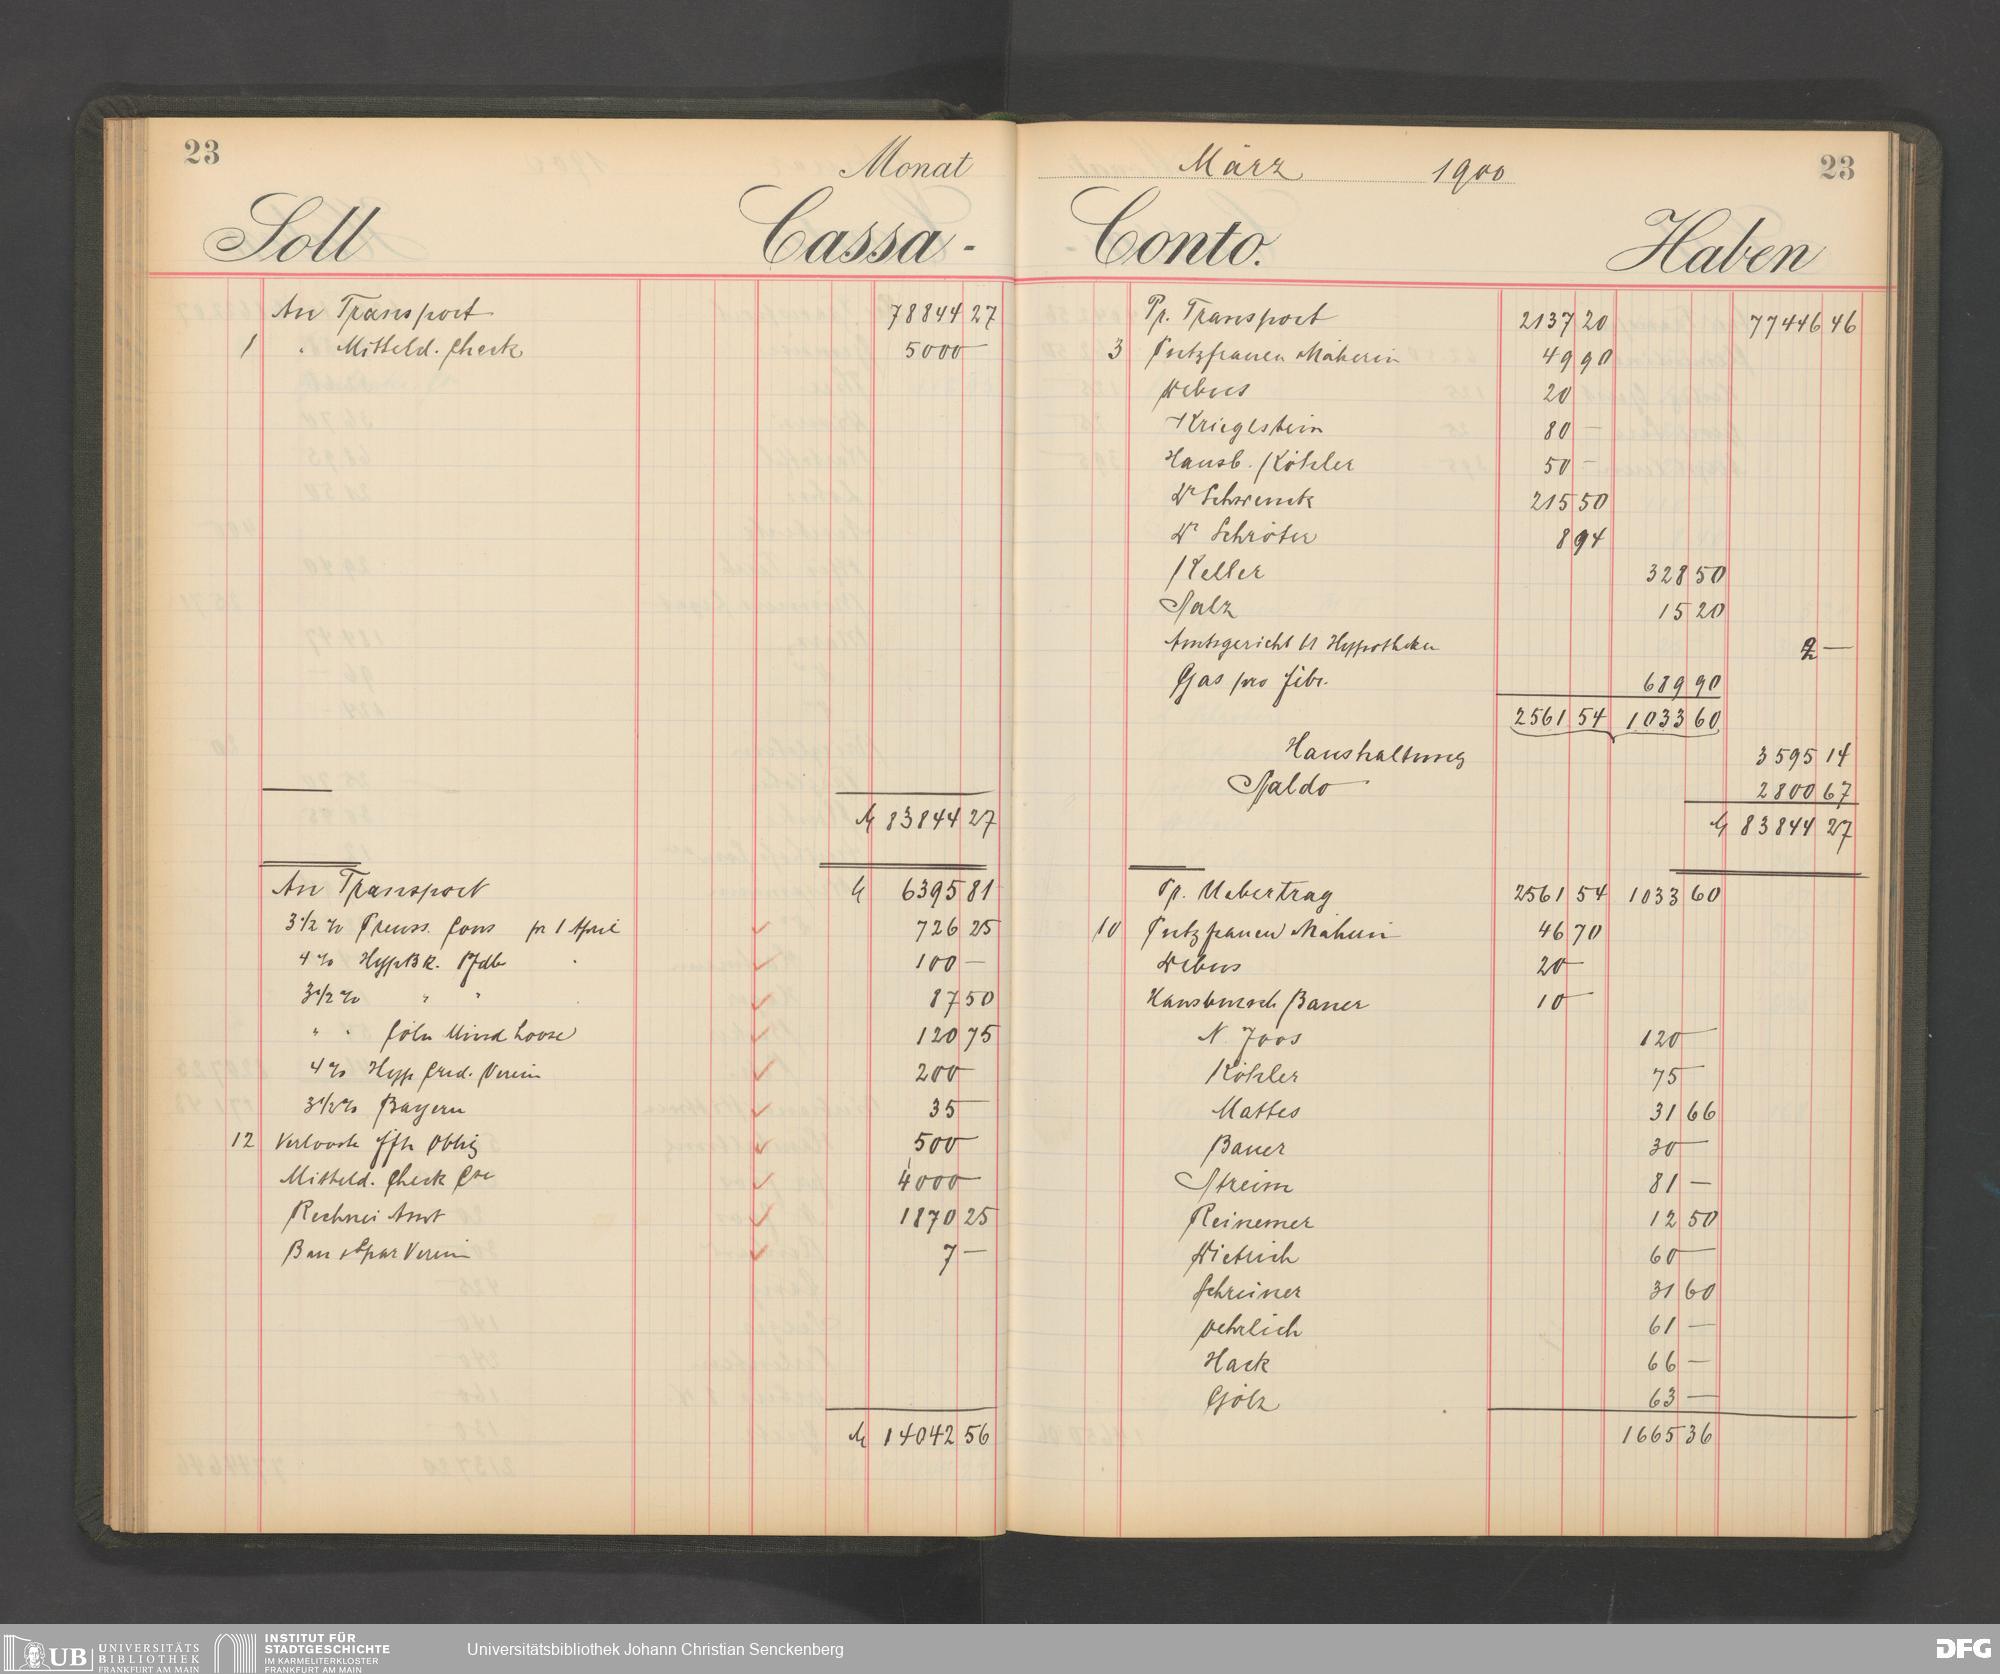 23
Monat
Soll Cassa-
An Transport 78844 27
1 " Mitteld. Check 5000 —
M 83844 27
An Transport M 6395 81
3 1/2 % Preuss. Cons pr 1 April 726 25
4 % Hyp BK. Pfdb " 100 —
3 1/2 % " " 87 50
" " Cöln Mind Loose 120 75
4 % Hyp Cred. Verein 200 —
3 1/2 % Bayern 35 —
12 Verlooste Oblig 500 —
Mitteld. Check Cto 4000 —
Rechnei Amt 1870 25
Bau & Spar Verein 7 —
M 14042 56
März 1900 23
Conto. Haben
Pr. Transport 2137 20 77446 46
3 Putzfrauen Näherin 49 90
Debus 20
Kriegstein 80 —
Hausb. Köhler 50 —
Dr Schwenck 215 50
Dr Schröter 8 94
Keller 328 50
Salz 15 20
Amtsgericht Hypotheken 2 —
Gas pro Febr. 689 90
2561 54 1033 60
Haushaltung 3595 14
Saldo 2800 67
M 83844 27
Pr. Uebertrag 2561 54 1033 60
10 Putzfrauen Näherin 46 70
Debus 20 —
Hausbursch Bauer 10 —
N. Joos 120 —
Köhler 75 —
Mattes 31 66
Bauer 30 —
Streim 81 —
Reinemer 12 50
Dietrich 60 —
Schreiner 31 60
Oehrlich 61 —
Hack 66 —
Götz 63 —
1665 36
UB UNIVERSITÄTS
BIBLIOTHEK
FRANKFURT AM MAIN
INSTITUT FÜR
STADTGESCHICHTE
IM KARMELITERKLOSTER
FRANKFURT AM MAIN
Universitätsbibliothek Johann Christian Senckenberg
DFG